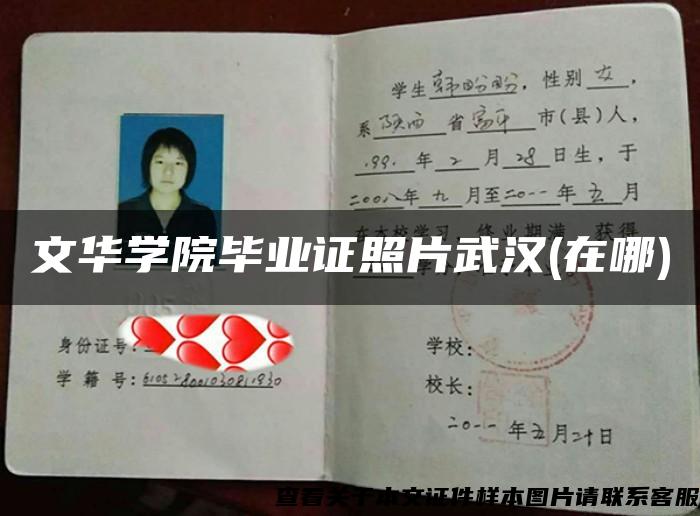 学生韩盼盼，性别女，
系陕西省富平市(县)人，
1991年2月28日生，于
二00八年九月至二0一一年五月
在本校学习，修业期满，获得
文华学院毕业证照片武汉(在哪)
身份证号:
学籍号:610528001030811930
学校:
校长:
二0一一年五月二十日
查看关于本文证件样本图片请联系客服